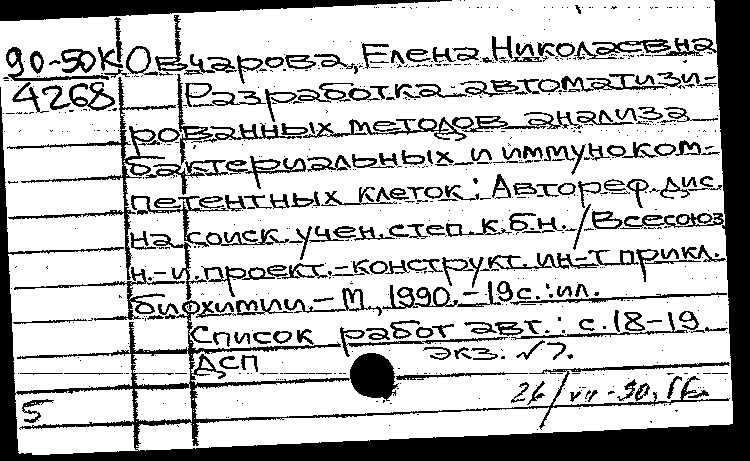 90-50К Овчарова, Елена Николаевна
4268 Разработка автоматизи-
рованных методов анализа
бактериальных и иммуноком-
петентных клеток: Автореф. дис.
на соиск. учен. степ. к.б.н. / Всесоюз.
н.-и. проект.-конструкт. ин-т прикл.
биохимии. – М., 1990. – 19 с.: ил.
Список работ авт.: с. 18-19.
ДСП экз. √7.
5 26/VII-90.